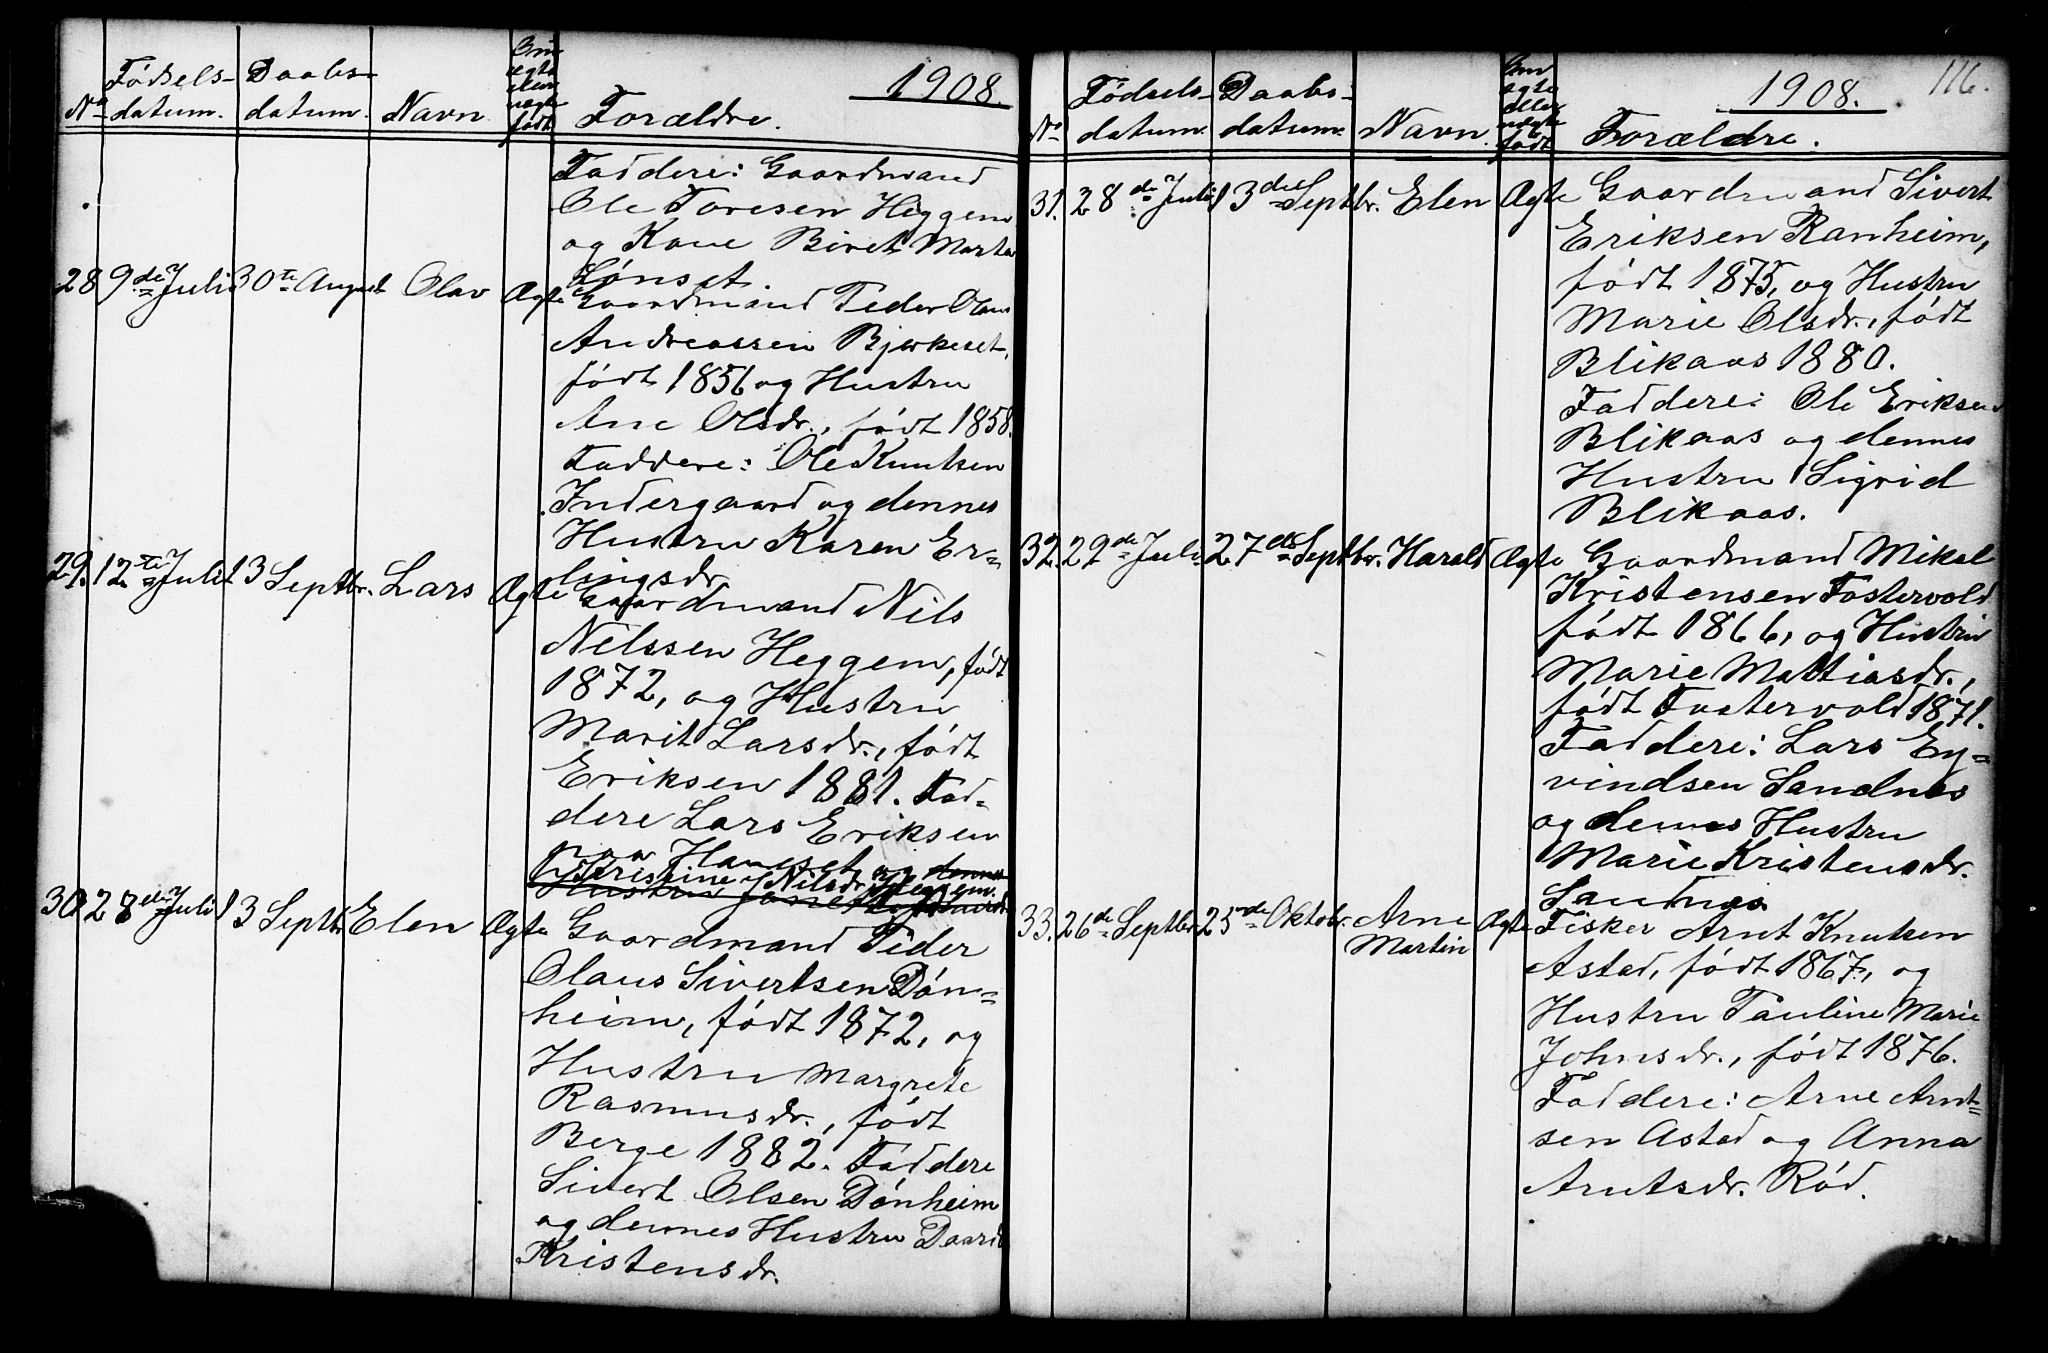 1908.
No
Fødsels-
datum.
Daabs-
datum.
Navn
Om
ægte
eller
uægte
født
Forældre.
Faddere: Gaardmand
Ole Toresen Heggem
og Kone Biret Marta
Lønset.
28 9de Juli 30te August Olav Ægte Gaardmand Peder Olaus
Andreassen Bjerkeset,
født 1856 og Hustru
Ane Olsdr., født 1858.
Faddere: Ole Knutsen
Indergaard og dennes
Hustru Karen Er-
lingsdr.
29. 12te Juli 13 Septbr. Lars Ægte Gaardmand Nils
Nilssen Heggem, født
1872, og Hustru
Marit Larsdr., født
Eriksen 1881. Fad-
dere Lars Eriksen
og dennes
Kristine Nilsdr. Heggem.
Hustru
30. 28de Juli 13 Septbr. Elen Ægte Gaardmand Peder
Olaus Sivertsen Døn-
heim, født 1872, og
Hustru Margrete
Rasmusdr., født
Berge 1882. Faddere
Sivert Olsen Dønheim
og dennes Hustru Daarid
Kristensdr.
116.
1908.
No
Fødsels-
datum.
Daabs-
datum.
Navn
Om
ægte
eller
uægte
født
Forældre.
31. 28de Juli 13de Septbr. Elen Ægte Gaardmand Sivert
Eriksen Ranheim,
født 1875, og Hustru
Marie Olsdr., født
Blikaas 1880.
Faddere: Ole Eriksen
Blikaas og dennes
Hustru Sigrid
Blikaas.
32. 29de Juli 27de Septbr. Harald Ægte Gaardmand Mikal
Kristensen Fostervold
født 1866, og Hustru
Marie Mattiasdr.,
født Fostervold 1871.
Faddere: Lars Ey-
vindsen Sandnes
og dennes Hustru
Marie Kristensdr.
Sandnes
33. 26de Septbr. 25de Oktobr. Arne Ægte Fisker Arnt Knutsen
Martin
Astad, født 1867, og
Hustru Pauline Marie
Johnsdr., født 1876.
Faddere: Arne Arnt-
sen Astad og Anna
Arntsdr. Rød.